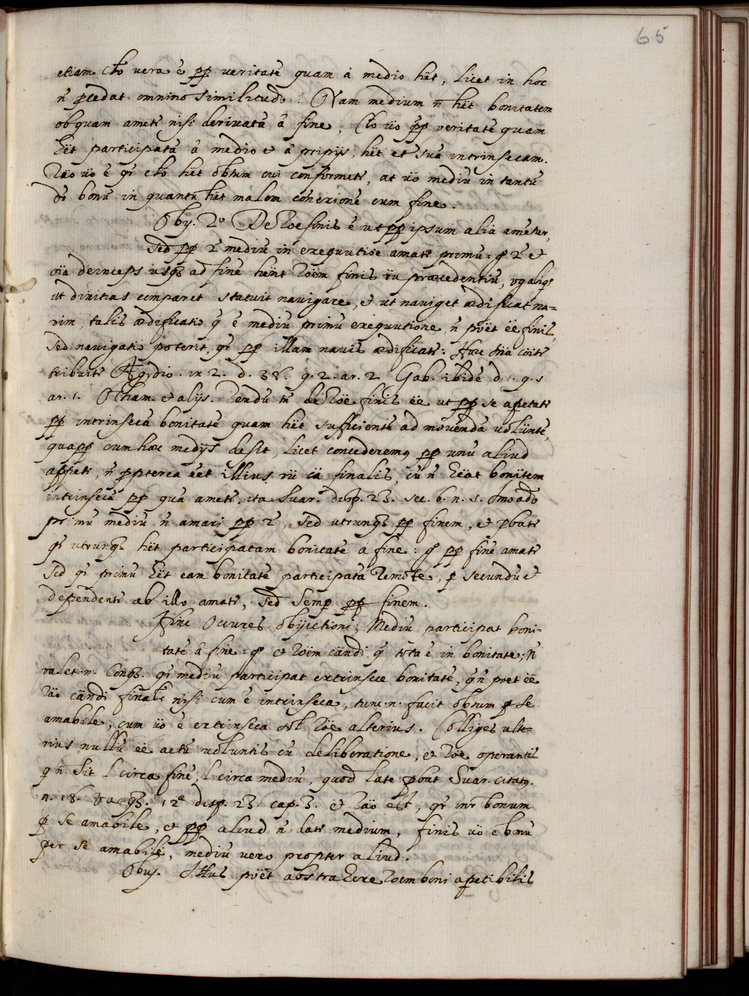 65
etiam cto vera ē pp veritatē quam à medio hēt, licet in hoc
n̄ pcedat omnino similitudo. Nam medium n̄ hēt bonitatem
ob quam ametr nisi derivatā â fine, Cto uō pp veritatē quam
hēt participatā â medio e â prijs, hēt et suā intrinsecam.
Rāo uō ē qr cto hēt obtum cui conformetr, at uō mediū in tantū
dr bonū in quantū hēt malem conexionē cum fine.
Obij. 2º De Roē finis ē ut pp ipsum alia ametur,
Sed pp 2 mediū in exequutiōe amatr primū: g 2 et
oīa deinceps usqs ad finē hēnt Roēm finis rū præcedentiū, vg aliqs
ut divitias comparet statuit navigare, et ut naviget ædificat na=
vim, talis ædificatio q ē mediū primū exequutione n̄ pōēt eē finis,
sed navigatio poterit, qr pp illam navis ædificatr: Hæc
tribuitr Ægydio in 2. d. 38. q. 2. ar. 2. Gab. ibidē d. 1. q. 5
ar. 1. Ocham et alijs. de Roē finis eē ut pp se apetatr
pp intrinsecā bonitatē quam hēt sufficientē ad movendā voluntē,
quapp cum hæc medijs desit, licet concederemq pp unū aliud
appeti, n̄ ppterea eēt illius rū cā finalis, cū n̄ hēat bonitem
intrinsecā pp quā ametr, ita Suar. disp. 23. sec. 6. n. 5.
primū mediū n̄ amari pp 2, sed utrunqs pp finem, et pbatr
qr utrunqs hēt participatam bonitatē a fine: g pp finē amatr
sed qr primū hēt eam bonitatē participatā remotē, p secundū et
dependentr ab illo amatr, sed semp pp finem.
Hinc Occurres obijctioni; Mediū participat boni-
tatē â fine: g et Roēm cāndi q tota ē in bonitate; n̄
valet n. Conqs. qr mediū participat extrinsece bonitatē, q n̄ pōēt eē
Rāo cāndi finalr nisi cum ē intrinseca, tunc n. facit obtum p se
amabile, cum uō ē extrinseca Roē alterius. Colliges ulte-
rius nullū eē actū voluntis cū deliberatione, et Roē operantis
q n̄ sit l circa finē, l circa mediū, quod late pbat Suar. citatq.
n. 18. 12ē disp. 23 cap. 3. et Rāo est, qr bonum
p se amabile, et pp aliud n̄ datr medium, finis uō ē bnū
per se amabile, mediū vero propter aliud.
Obij. pōēt abstrahere Roēm boni apetibilis